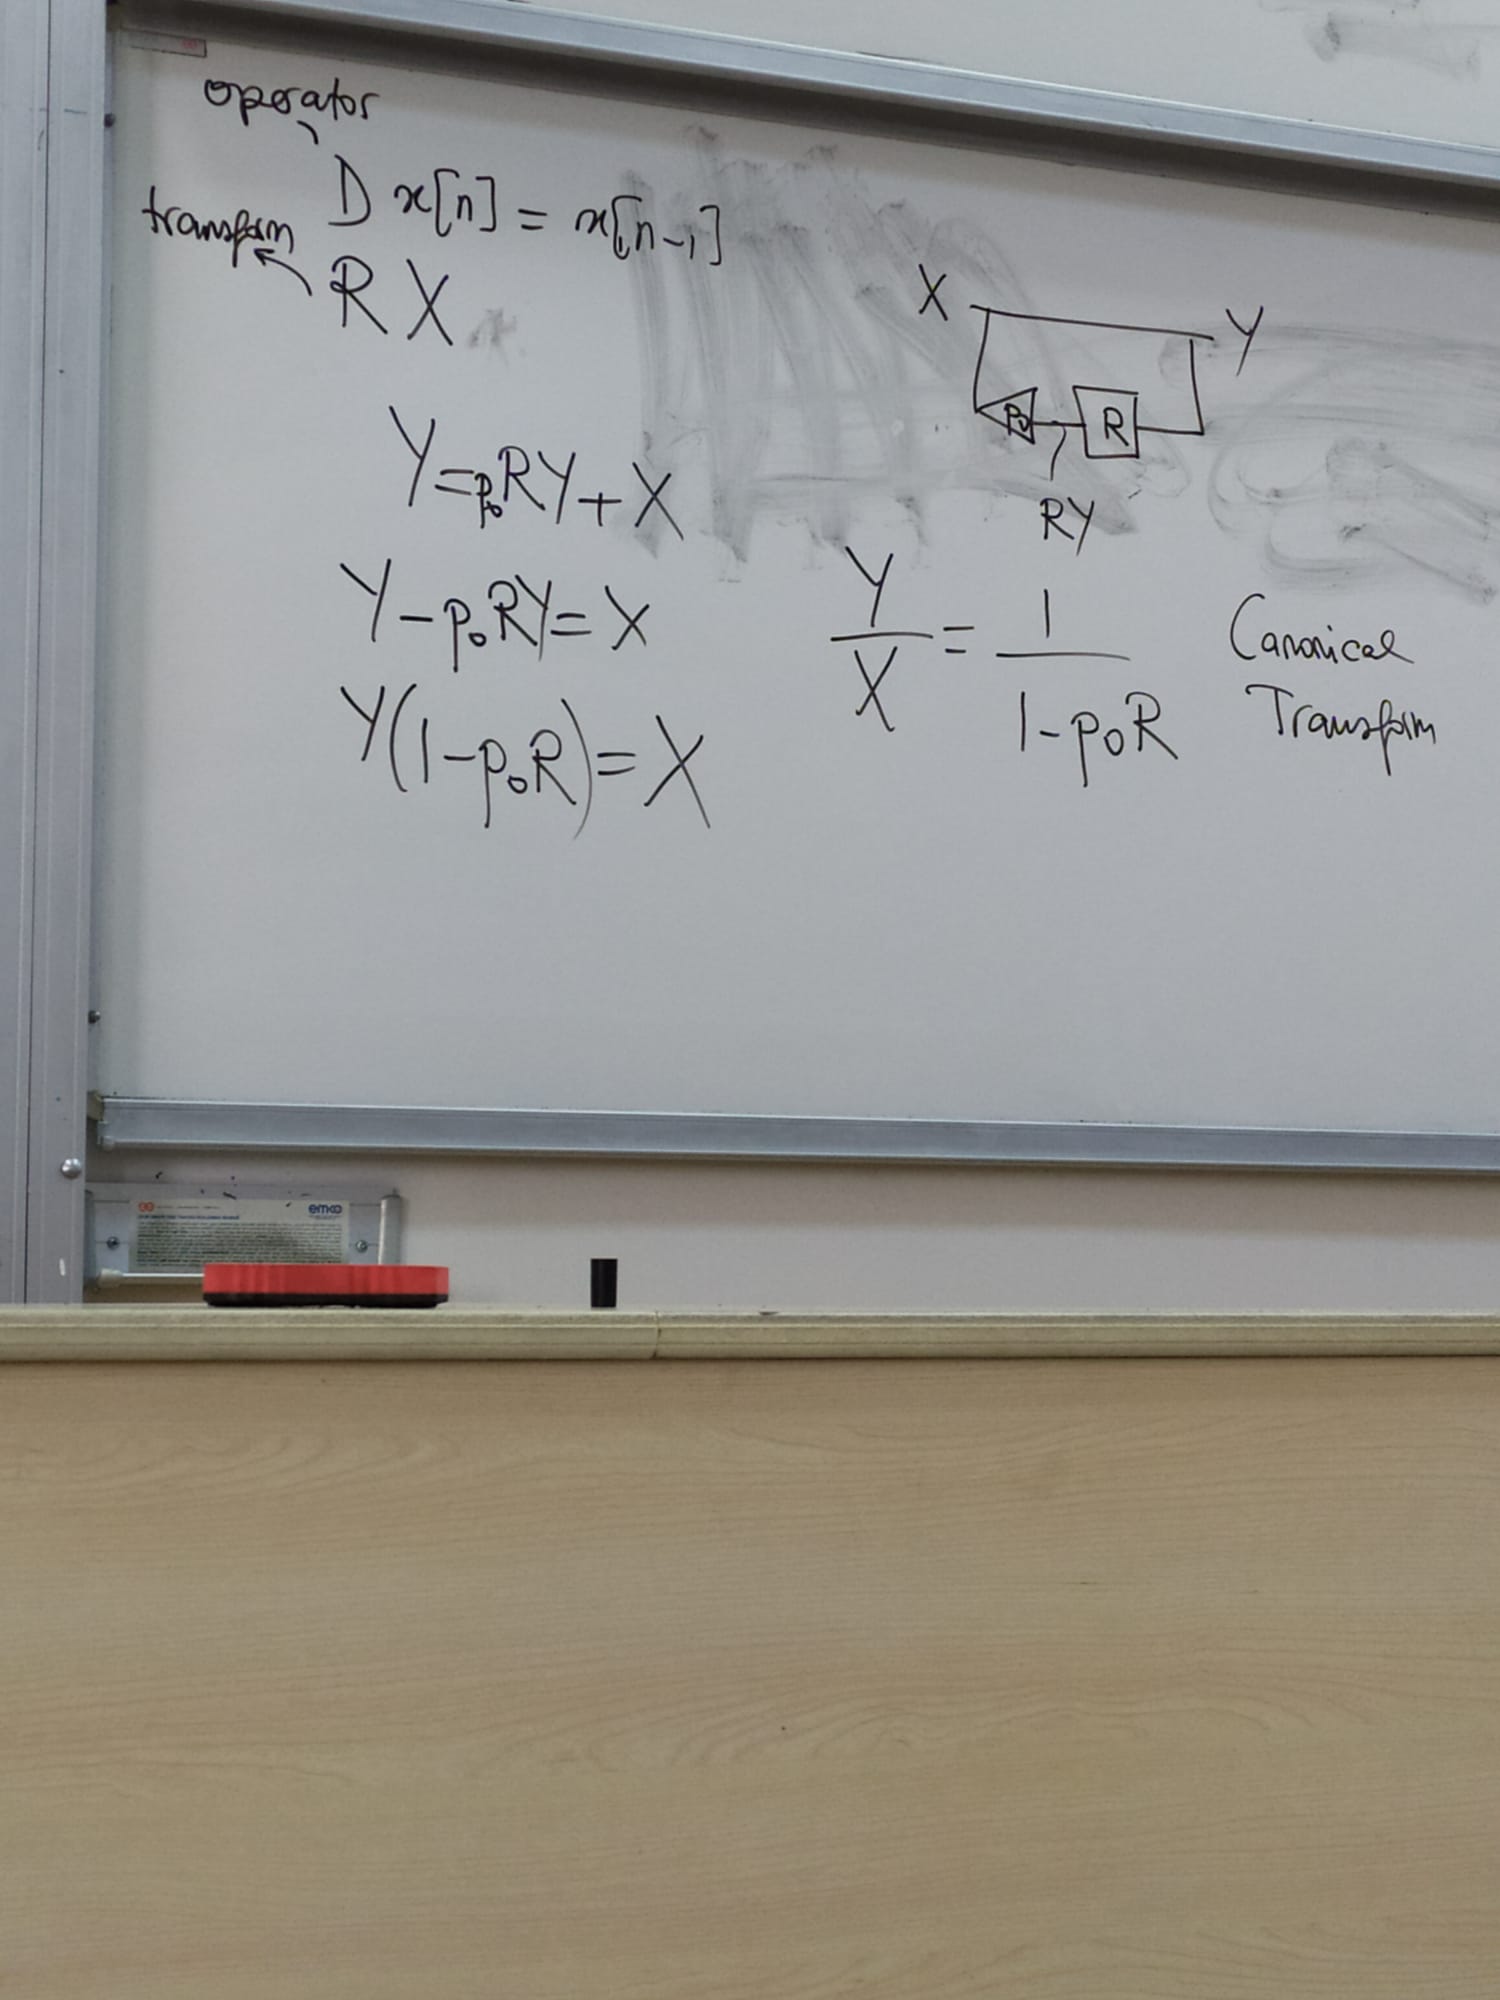 operator
D x[n] = x[n-1]
transform
R X
X
Y
P0
R
RY
Y=p₀RY+X
Y-p₀RY=X
Y(1-p₀R)=X
Y/X = 1/(1-p₀R)
Canonical
Transform
emko